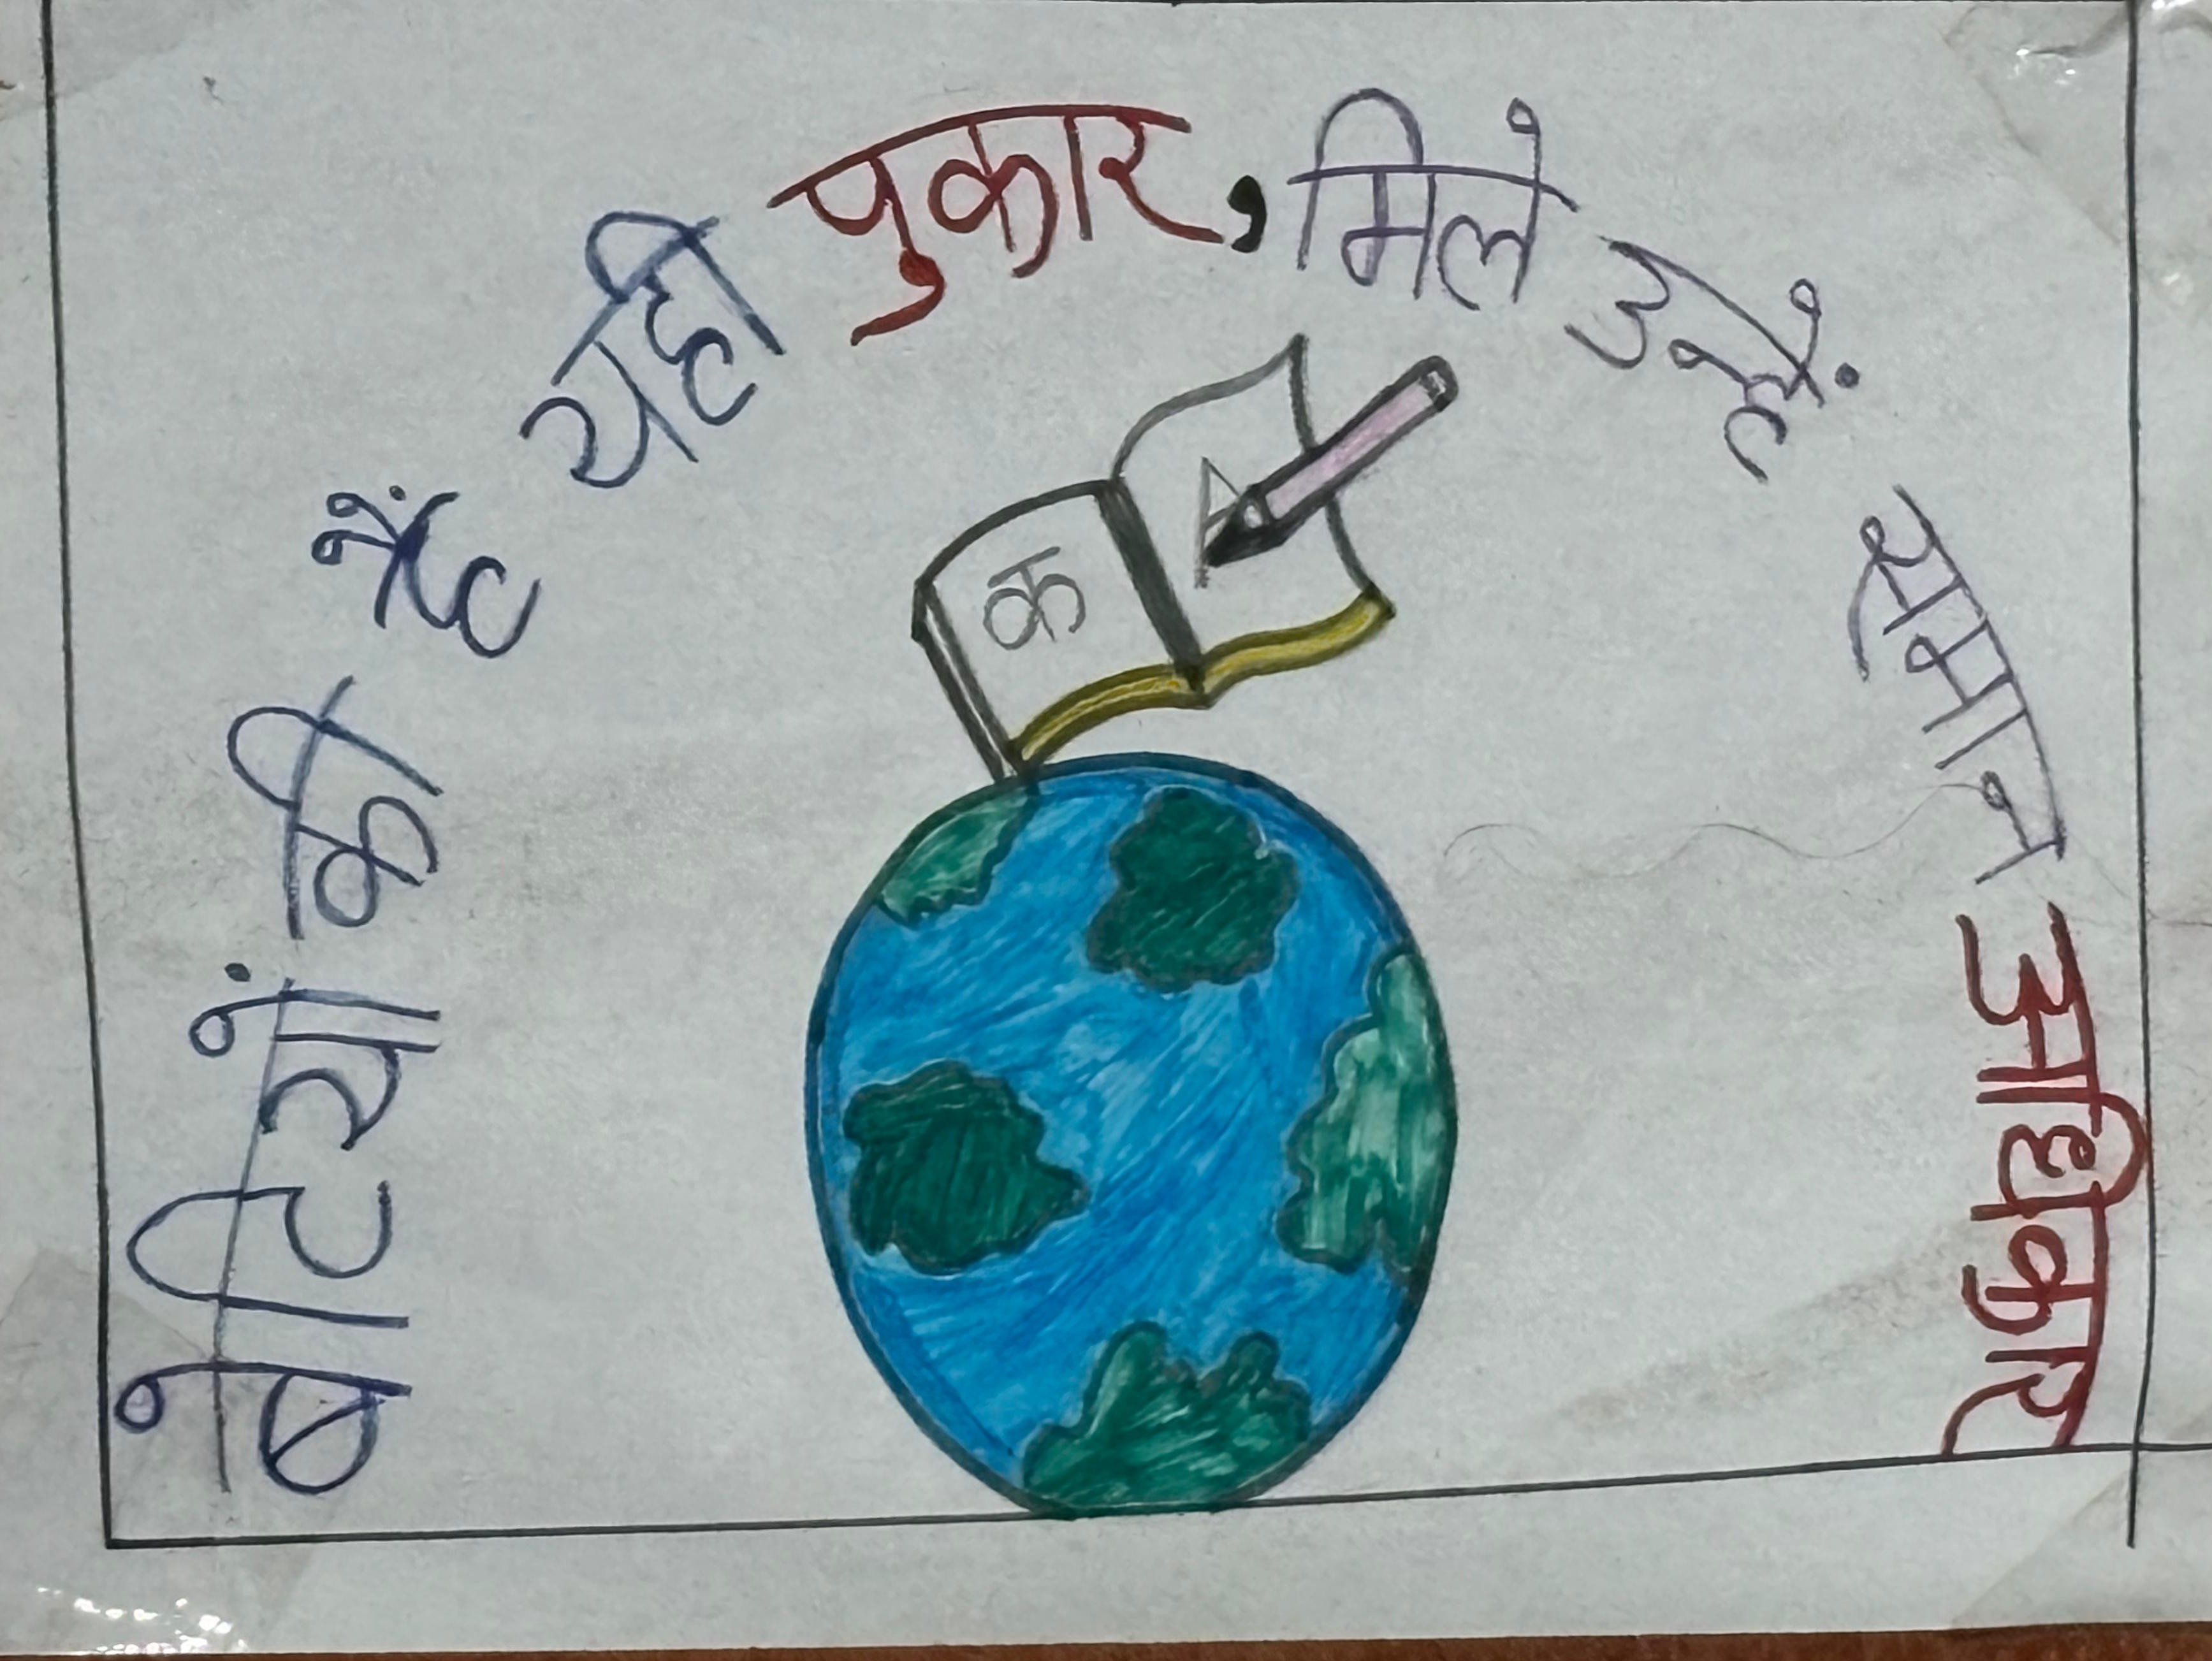 बेटियों की हैं यही पुकार, मिले उन्हें समान अधिकार
क
A